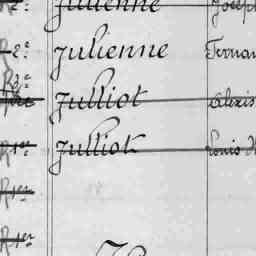 2e Julienne Joseph
2e Julienne Fernan
Julliot Alexis
1er Julliot Louis
1er
1er